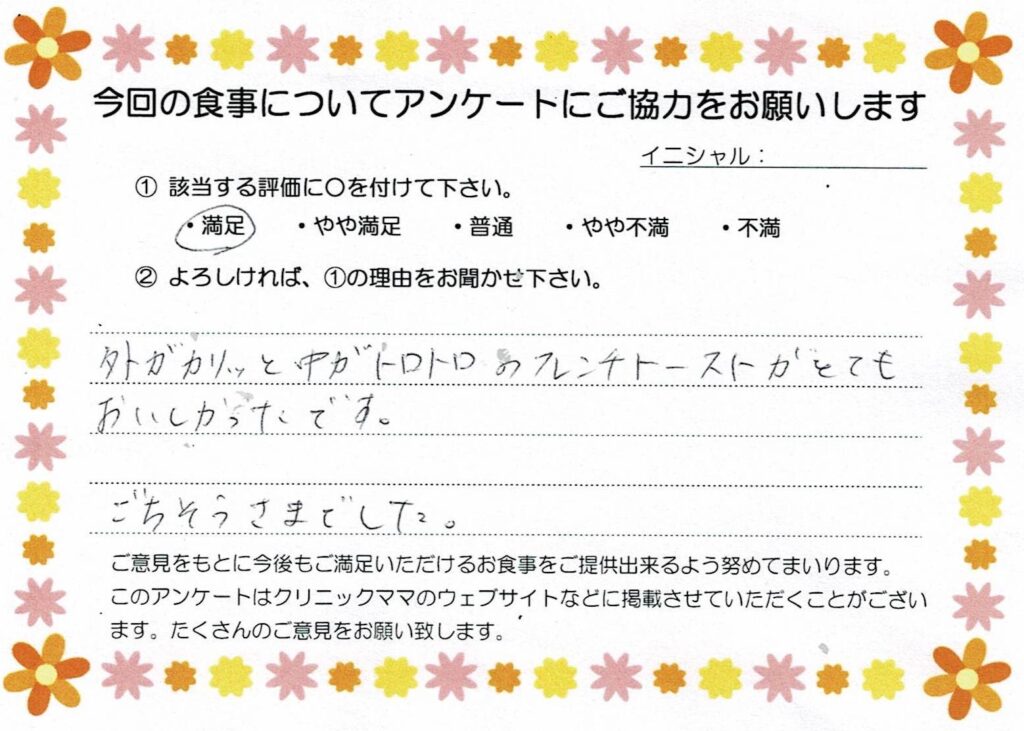 今回の食事についてアンケートにご協力をお願いします
イニシャル：
① 該当する評価に○を付けて下さい。
・満足 ・やや満足 ・普通 ・やや不満 ・不満
② よろしければ、①の理由をお聞かせ下さい。
外がカリッと中がトロトロのフレンチトーストがとても
おいしかったです。
ごちそうさまでした。
ご意見をもとに今後もご満足いただけるお食事をご提供出来るよう努めてまいります。
このアンケートはクリニックママのウェブサイトなどに掲載させていただくことがござい
ます。たくさんのご意見をお願い致します。